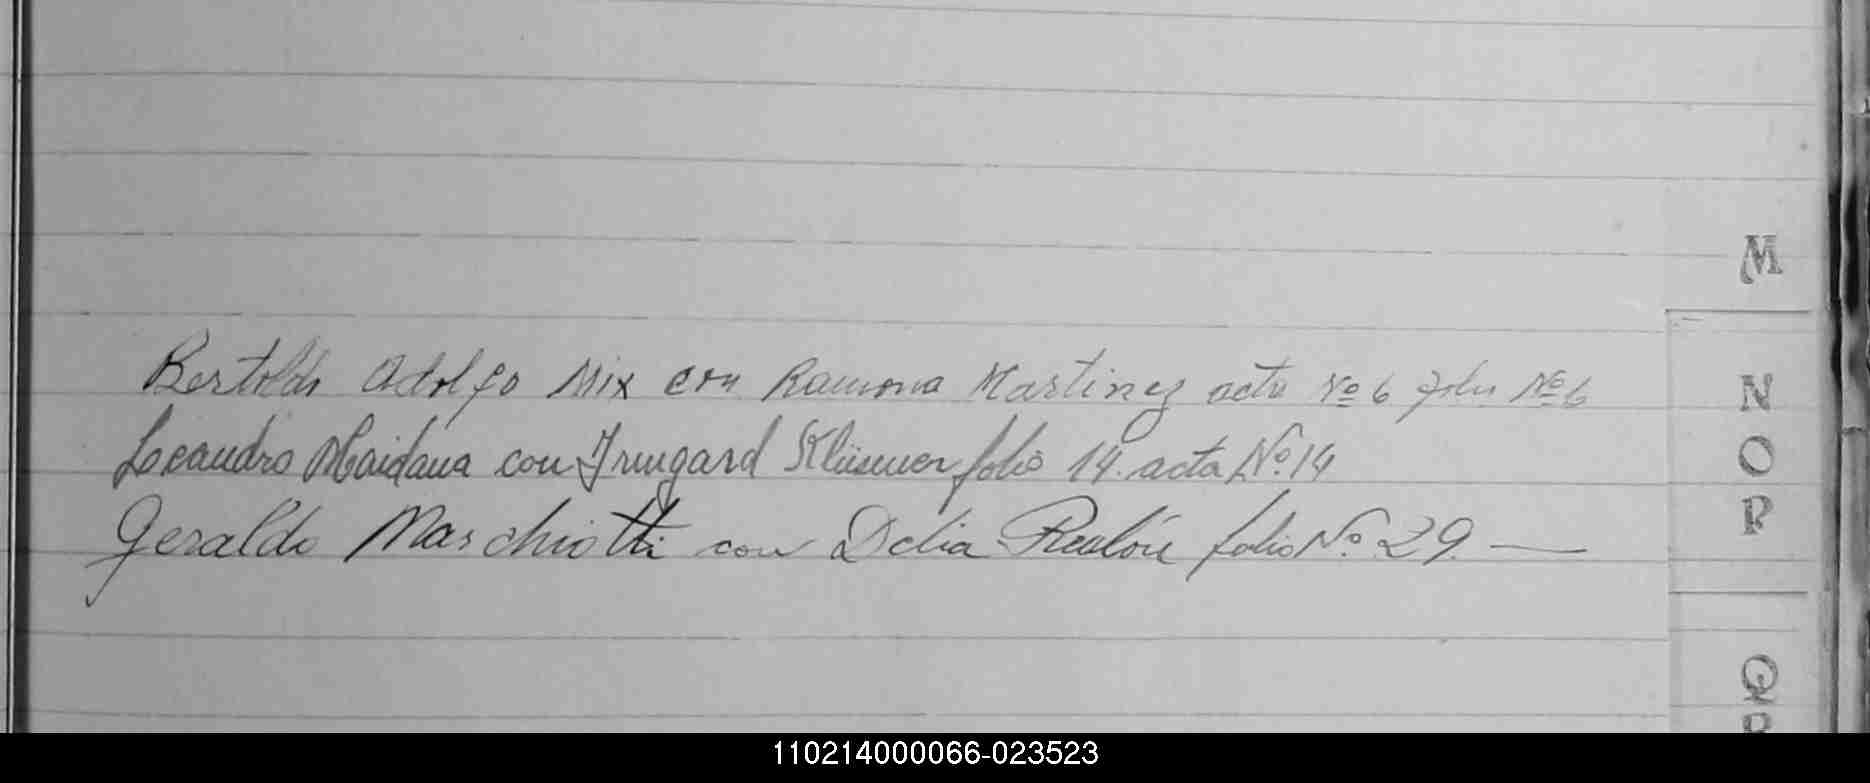 M
Bertoldo Adolfo Mix con Ramona Martinez acta Nº 6 folio Nº 6
N
Leandro Maidana con Irmgard Klüsener folio 14. acta Nº 14
O
Geraldo Maschiotti con Delia folio Nº 29 —
P
Q
R
110214000066-023523